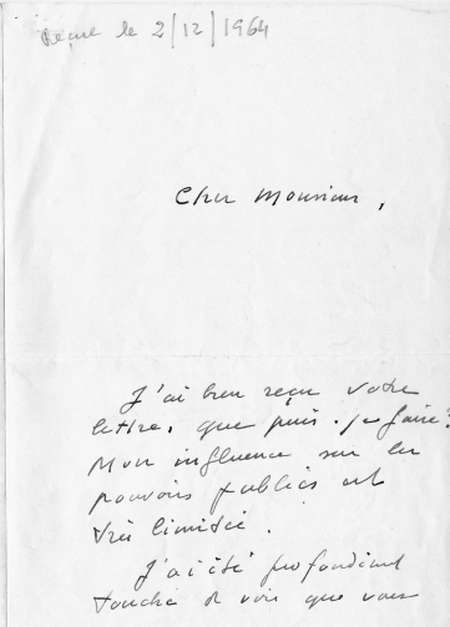 Reçue le 2/12/1964
Cher Monsieur,
J'ai bien reçu votre
lettre, que puis-je faire?
Mon influence sur les
pouvoirs publics est
très limitée.
J'ai été profondément
touché de voir que vous